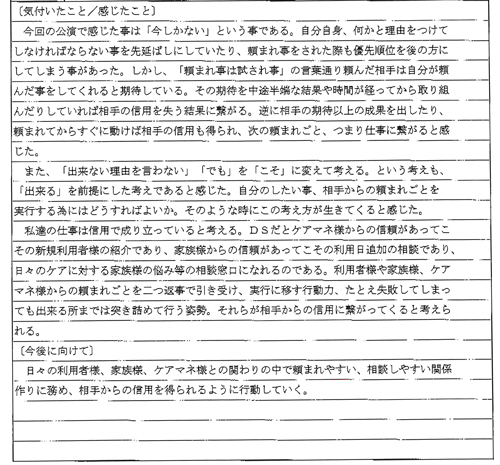 〔気付いたこと／感じたこと〕
今回の公演で感じた事は「今しかない」という事である。自分自身、何かと理由をつけて
しなければならない事を先延ばしにしていたり、頼まれ事をされた際も優先順位を後の方に
してしまう事があった。しかし、「頼まれ事は試され事」の言葉通り頼んだ相手は自分が頼
んだ事をしてくれると期待している。その期待を中途半端な結果や時間が経ってから取り組
んだりしていれば相手の信用を失う結果に繋がる。逆に相手の期待以上の成果を出したり、
頼まれてからすぐに動けば相手の信用も得られ、次の頼まれごと、つまり仕事に繋がると感
じた。
また、「出来ない理由を言わない」「でも」を「こそ」に変えて考える。という考えも、
「出来る」を前提にした考えであると感じた。自分のしたい事、相手からの頼まれごとを
実行する為にはどうすればよいか。そのような時にこの考え方が生きてくると感じた。
私達の仕事は信用で成り立っていると考える。ＤＳだとケアマネ様からの信頼があってこ
その新規利用者様の紹介であり、家族様からの信頼があってこその利用日追加の相談であり、
日々のケアに対する家族様の悩み等の相談窓口になれるのである。利用者様や家族様、ケア
マネ様からの頼まれごとを二つ返事で引き受け、実行に移す行動力、たとえ失敗してしまっ
ても出来る所までは突き詰めて行う姿勢。それらが相手からの信用に繋がってくると考えら
れる。
〔今後に向けて〕
日々の利用者様、家族様、ケアマネ様との関わりの中で頼まれやすい、相談しやすい関係
作りに務め、相手からの信用を得られるように行動していく。